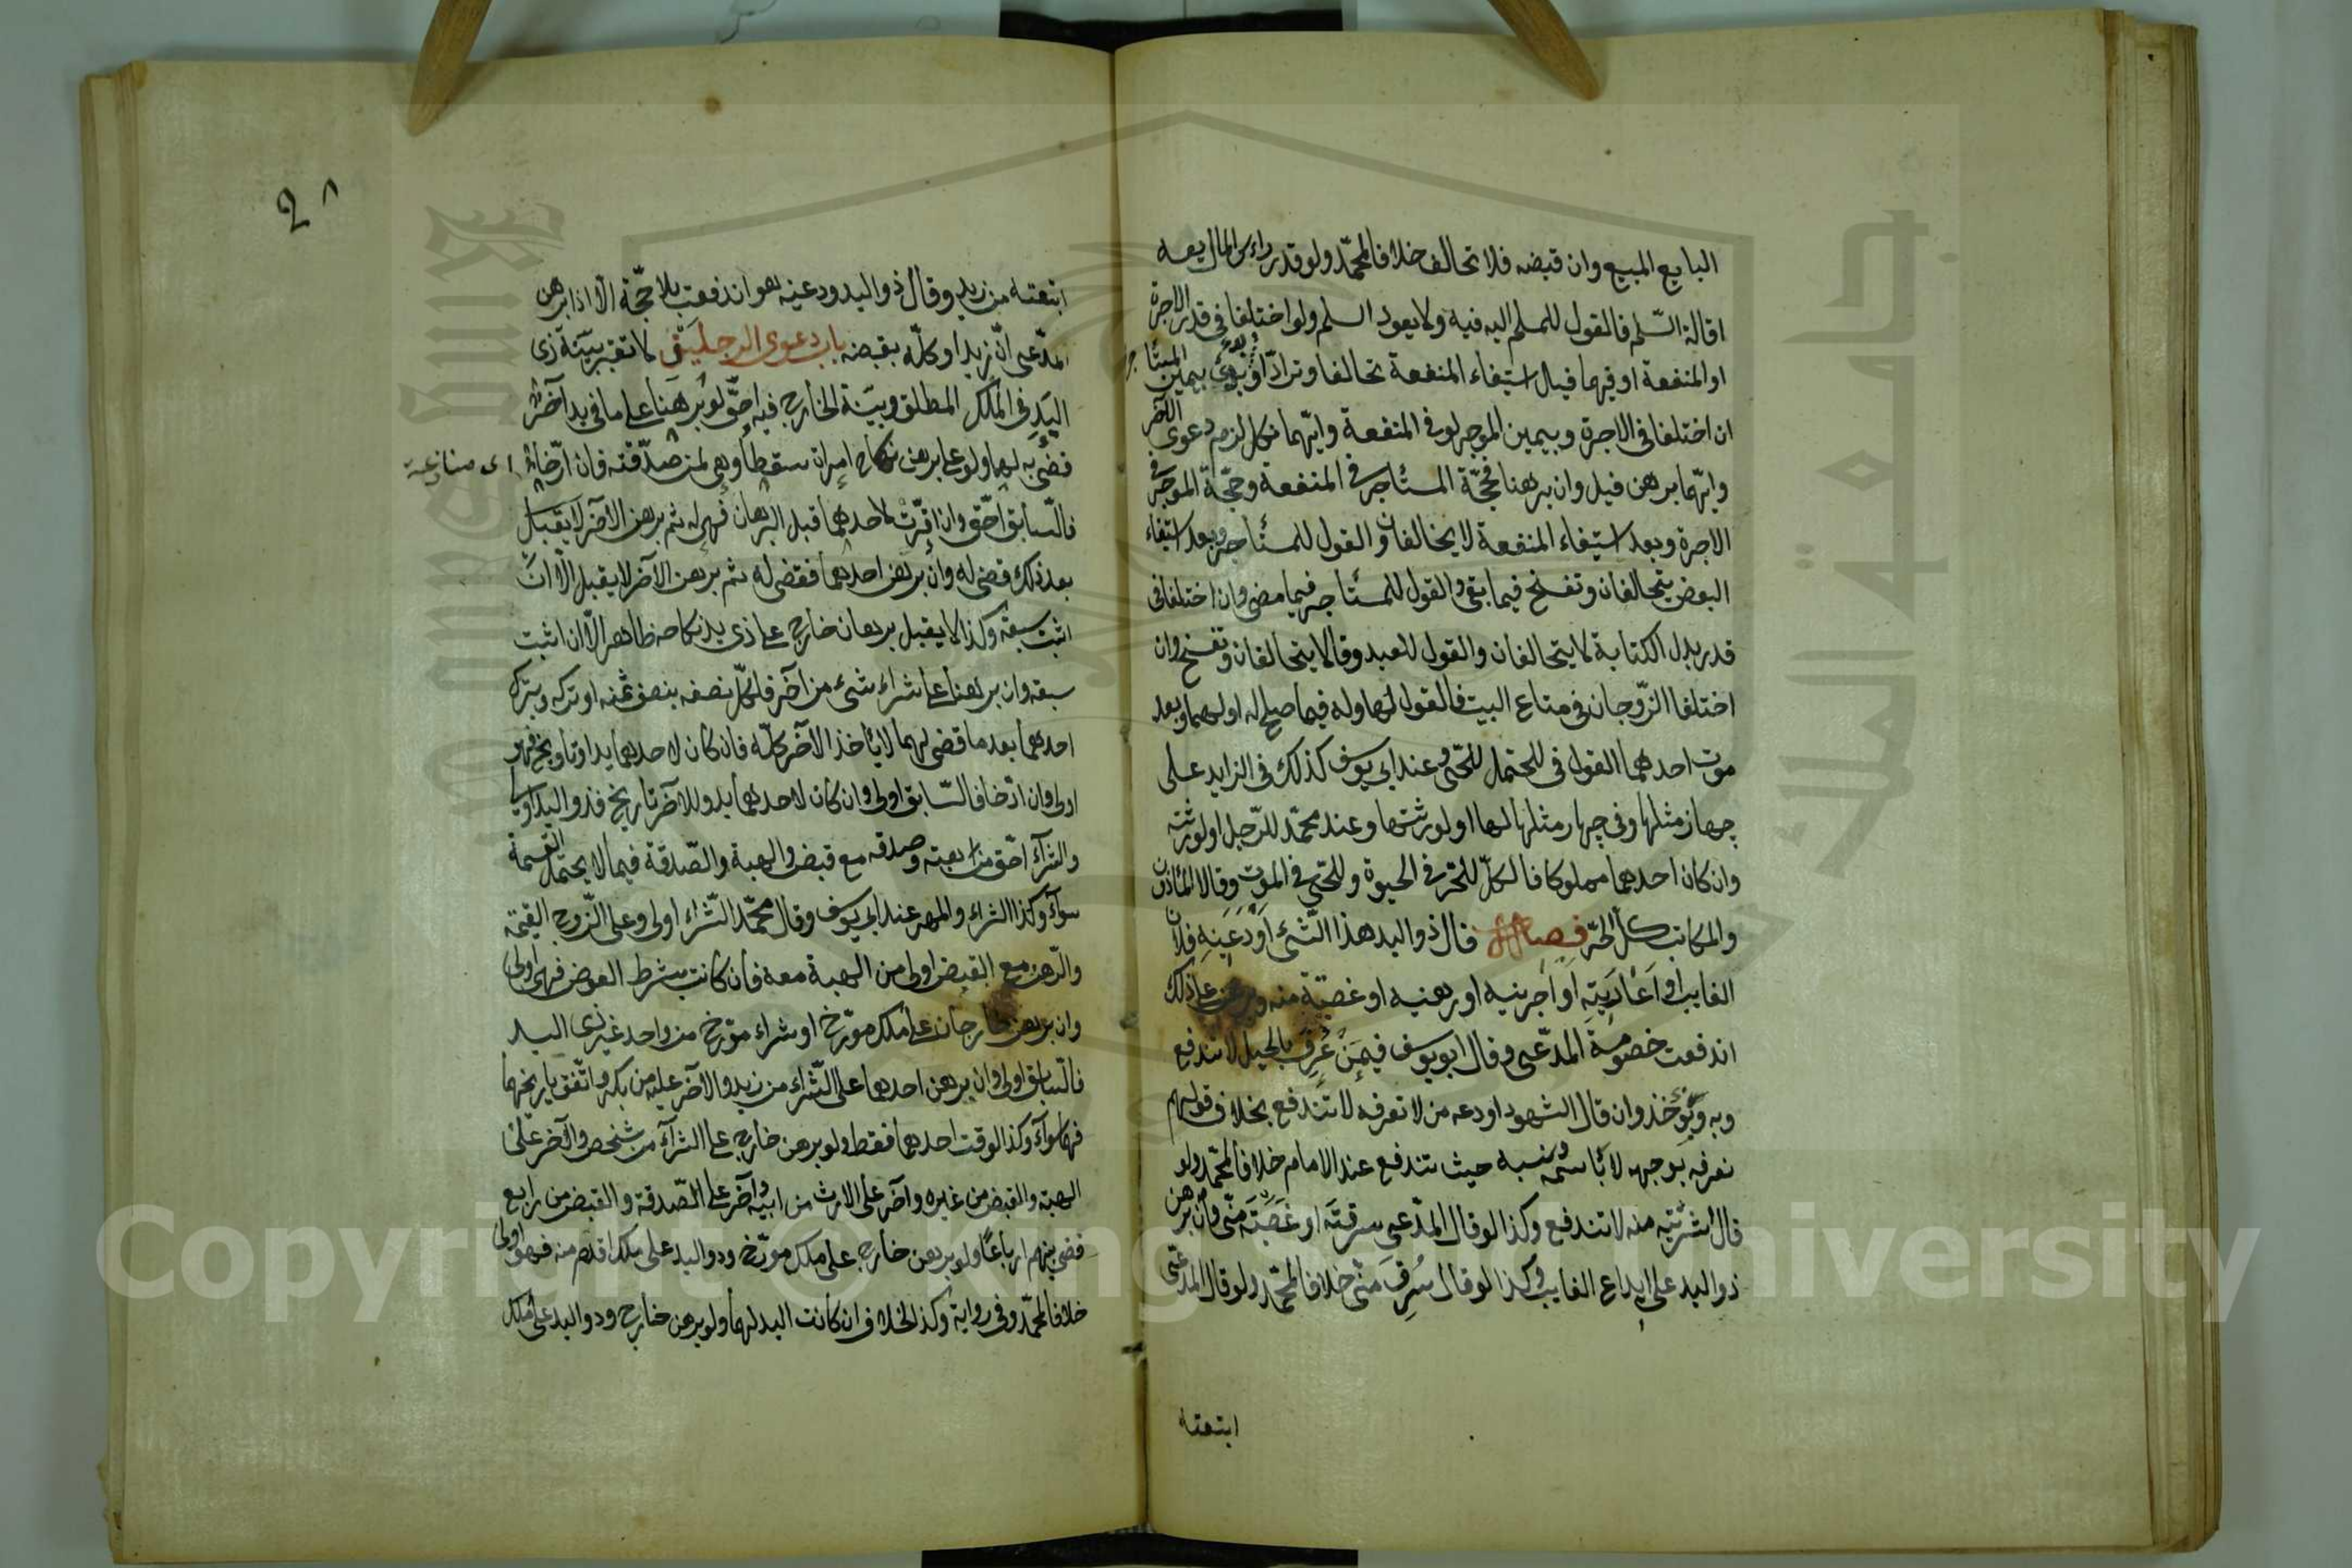 البايع المبيع وان قبضه فلا تحالف خلافا لمحمد ولو قدر راءس المال بعد
اقالة السّلم فالقول للمسلم اليه فيه ولا يعود السلم ولو اختلفا في قدر الاجرة
او المنفعة او فيهما قبل استيفاء المنفعة تحالفا وترادّا وبدئ بيمين المستأجر
ان اختلفا في الاجرة وبيمين الموجر لو في المنفعة وايّهما نكل لزم دعوى الآخر
وايّهما برهن قبل وان برهنا فحجّة المستأجر في المنفعة وحجّة الموجر في
الاجرة وبعد استيفاء المنفعة لا يتحالفان والقول للمستأجر وبعد استيفاء
البعض يتحالفان وتفسخ فيما بقي والقول للمستأجر فيما مضى وان اختلفا في
قدر بدل الكتابة لا يتحالفان والقول للعبد وقالا يتحالفان وتفسخ وان
اختلفا الزّوجان في متاع البيت فالقول لها وله فيما صلح له او لهما وبعد
موت احدهما القول في المحتمل للحيّ وعند ابي يوسف كذلك في الزايد على
جهاز مثلها وفي جهاز مثلها لها او لورثتها وعند محمّد للرّجل او لورثته
وان كان احدهما مملوكا فالكلّ للحرّ في الحيوة وللحيّ في الموت وقالا المأذون
والمكاتب كالحرّ فصل قال ذو اليد هذا الشّئ اَوْدَعَنِيهِ فلان
الغايب او اَعَارَنِيهِ او اٰجرنيه او رهنيه او غصبته منه وبرهن على ذلك
اندفعت خصومة المدّعى وقال ابو يوسف فيمَنْ عُرِفَ بالحيل لا تندفع
وبه يؤخذ وان قال الشهود اودعه من لا نعرفه لا تندفع بخلاف قولهم
نعرفه بوجهه لا باسمه ونسبه حيث تندفع عند الامام خلافا لمحمّد ولو
قال شريته منه لا تندفع وكذا لو قال المدّعى سرقتَه او غَصَبْتَه منّى وان برهن
ذو اليد على ايداع الغايب وكذا لو قال سُرِقَ منّى خلافا لمحمّد ولو قال المدّعى
ابتعته
٢٨
ابتعته من زيد وقال ذو اليد ودعينه هو اندفعت بلا حجّة الّا اذا برهن
المدّعى انّ زيدا وكلّه بقبضه باب دعوى الرجلين لا تعتبر بيّنة ذى
اليَدِ في المُلك المطلق وبيّنة الخارج فيه احقّ ولو برهنا على ما في يد آخر
قضى به لهما ولو على برهن نكاح امرأة سقطا وهى لمن صدّقته فان ارّخا
اى منازعة
فالسّابق احّق وان اقرّت لاحدهما قبل البرهان فهى له ثم برهن الآخر لا يقبل
بعد ذلك قضى له وان برهن احدهما فقضى له ثم برهن الآخر لا يقبل الّا ان
اثبت سبقه وكذا لا يقبل برهان خارج على ذى يد نكاحه ظاهر الّا ان اثبت
سبقه وان برهنا على شراء شىء من آخر فلكلّ نصفه بنصف ثمنه او تركه وبترك
احدهما بعد ما قضى لهما لا يأخذ الآخر كلّه فان كان لاحدهما يد او تاريخ فهو
اولى وان ارّخا فالسّابق اولى وان كان لاحدهما يد وللآخر تاريخ فذو اليد اولى
والشراء احّق من هبته وصدقه مع قبض والهبة والصّدقة فيما لا يحتمل القسمة
سواء وكذا الشراء والمهر عند ابي يوسف وقال محمّد الشّراء اولى وعلى الزّوج القيمة
والرّهن مع القبض اولى من الهبة معه فان كانت بشرط العوض فهى اولى
وان برهن خارجان على ملك مورّخ او شراء مورّخ من واحد غير ذى اليد
فالسّابق اولى وان برهن احدهما على الشّراء من زيد والاخر عليه من بكر واتّفق تاريخهما
فهما سواء وكذا لو وقت احدهما فقط ولو برهن خارج على الشراء من شخص والآخر على
الهبة والقبض من غيره وآخر على الارث من ابيه وآخر على الصّدقة والقبض من رابع
قضى بينهم ارباعًا ولو برهن خارج على ملك مورّخ وذو اليد على ملك اقدم منه فهو اولى
خلافا لمحمّد وفي رواية وكذا الخلاف ان كانت اليد لهما ولو برهن خارج وذو اليد على ملك
Copyright © King Saud University